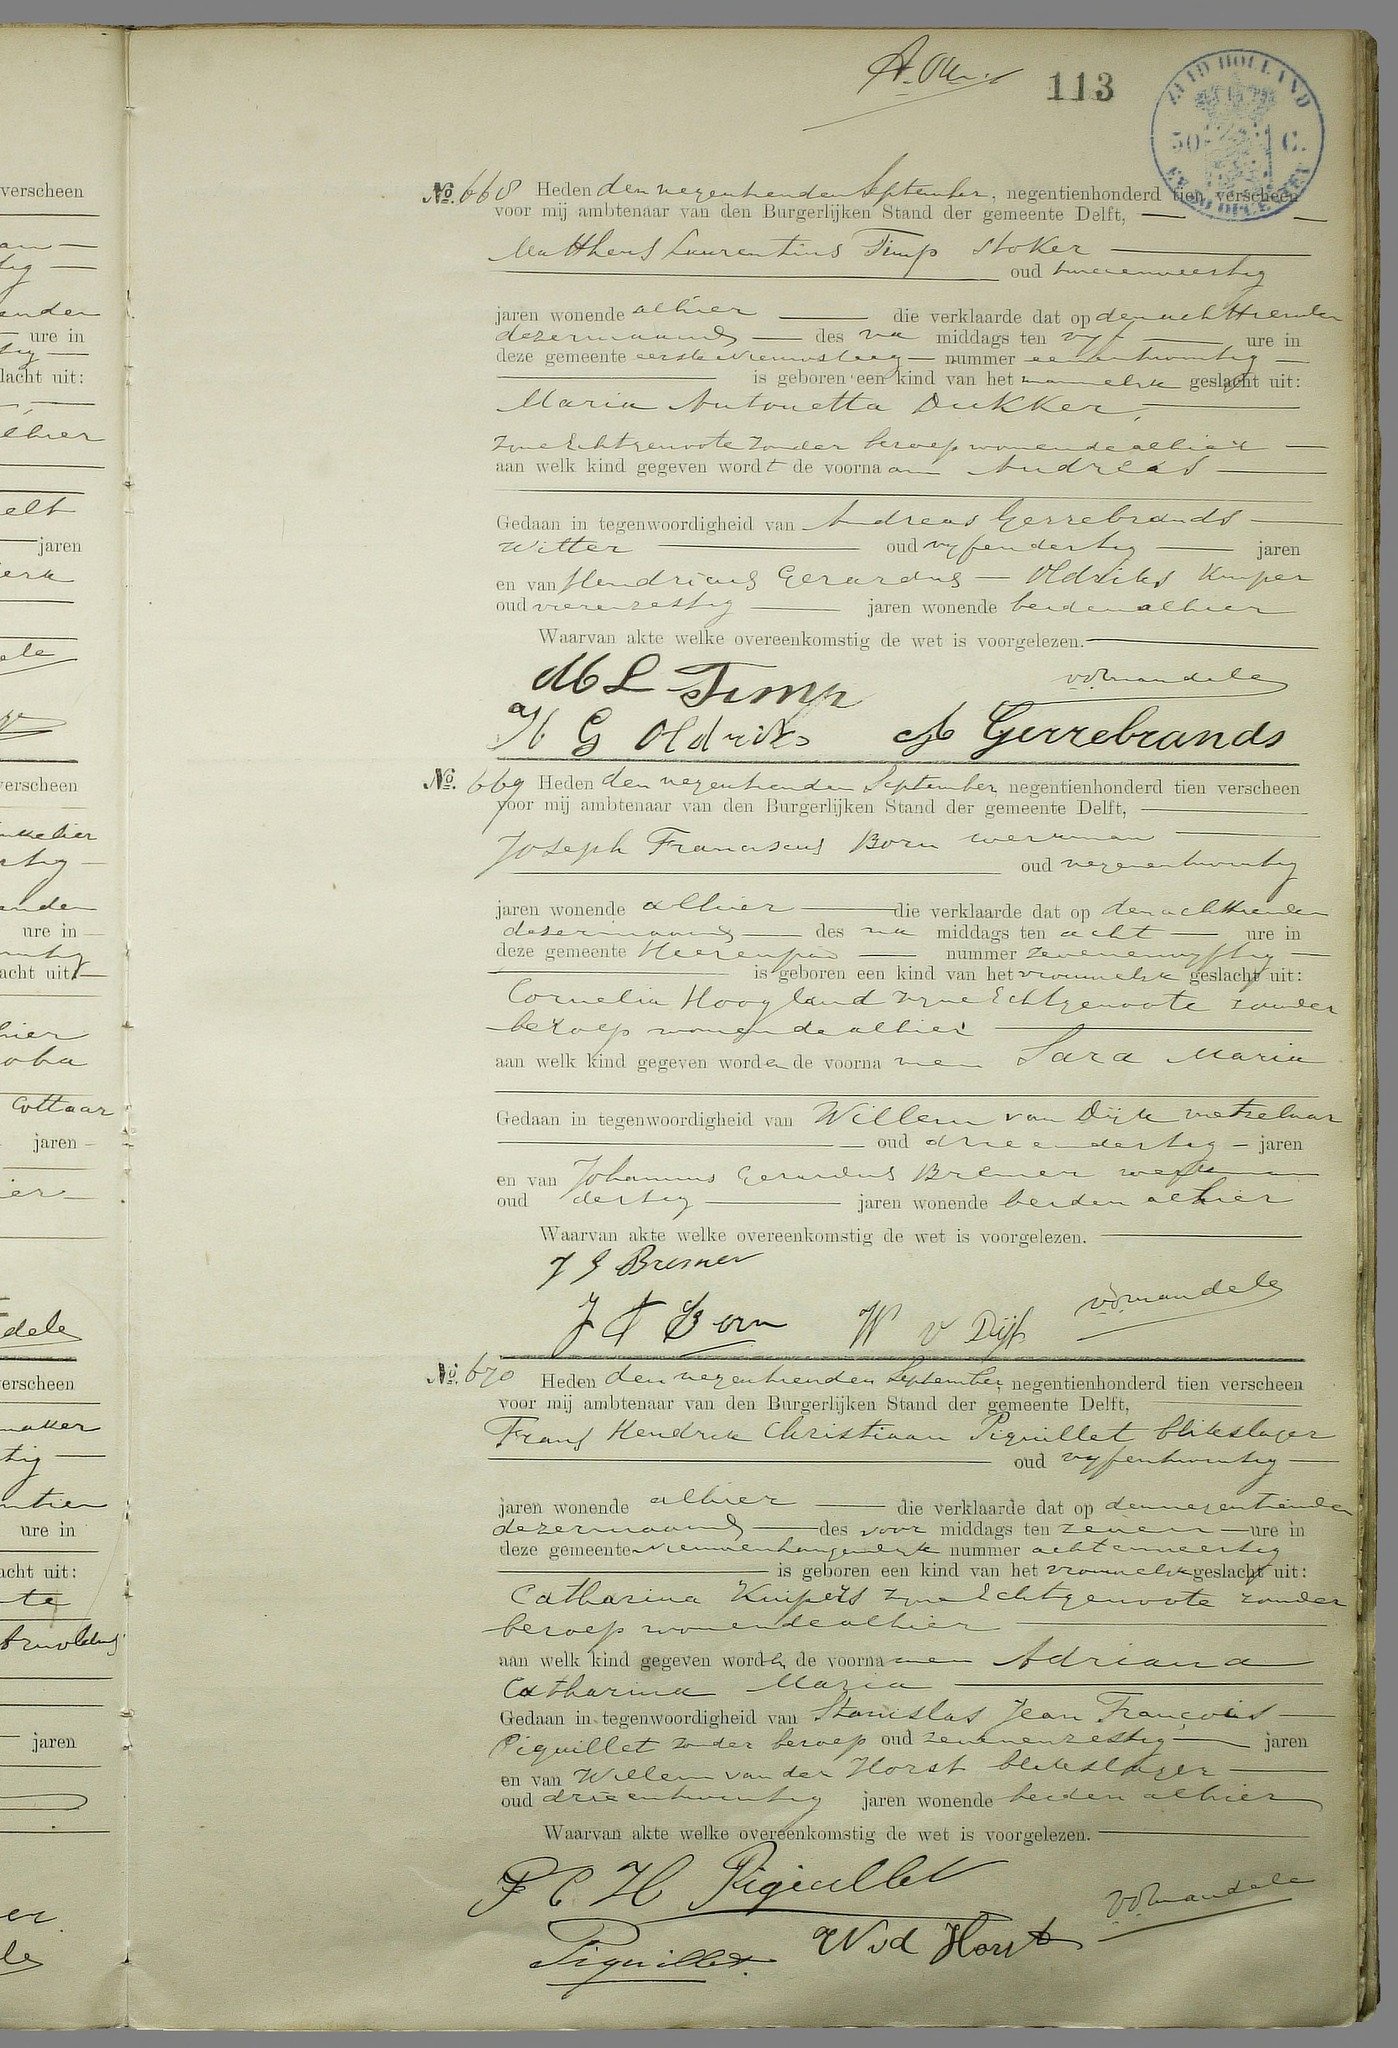 verscheen
ure in
slacht uit:
jaren
verscheen
ure in
acht uit
oba
Cottaar
jaren
dele
verscheen
ure in
acht uit:
te
jaren
113
ZUID HOLLAND
50 C.
No. 668 Heden den negentienden September, negentienhonderd tien verscheen
voor mij ambtenaar van den Burgerlijken Stand der gemeente Delft,
Mattheus Laurentius Timp stoker
oud tweeenveertig
jaren wonende alhier die verklaarde dat op den achttienden
dezer maand des na middags ten vijf ure in
deze gemeente eerste Nieuwsteeg nummer eenentwintig
is geboren een kind van het mannelijk geslacht uit:
Maria Antonetta Dukker,
zijne Echtgenoote zonder beroep wonende alhier
aan welk kind gegeven wordt de voornaam Andreas
Gedaan in tegenwoordigheid van Andreas Gerrebrands
Witter oud vijfendertig jaren
en van Hendricus Gerardus Oldriks Kuiper
oud vierenzestig jaren wonende beiden alhier
Waarvan akte welke overeenkomstig de wet is voorgelezen.
M L Timp
H G Oldriks A Gerrebrands
No. 669 Heden den negentienden September negentienhonderd tien verscheen
voor mij ambtenaar van den Burgerlijken Stand der gemeente Delft,
Joseph Franciscus Born werkman
oud negenentwintig
jaren wonende alhier die verklaarde dat op den achttienden
dezer maand des na middags ten acht ure in
deze gemeente Heerenpad nummer zevenenvijftig
is geboren een kind van het vrouwelijk geslacht uit:
Cornelia Hoogland zijne Echtgenoote zonder
beroep wonende alhier
aan welk kind gegeven worden de voornamen Sara Maria
Gedaan in tegenwoordigheid van Willem van Dijk metselaar
oud drieendertig jaren
en van Johannes Gerardus Bremer werkman
oud dertig jaren wonende beiden alhier
Waarvan akte welke overeenkomstig de wet is voorgelezen.
J G Bremer
J F Born W v Dijk
No. 670 Heden den negentienden September, negentienhonderd tien verscheen
voor mij ambtenaar van den Burgerlijken Stand der gemeente Delft,
Frans Hendrik Christiaan Piquillet blikslager
oud vijfentwintig
jaren wonende alhier die verklaarde dat op den negentienden
dezer maand des voor middags ten zeven ure in
deze gemeente nummer achtenveertig
is geboren een kind van het vrouwelijk geslacht uit:
Catharina Kuipers zijne Echtgenoote zonder
beroep wonende alhier
aan welk kind gegeven worden de voornamen Adriana
Catharina Maria
Gedaan in tegenwoordigheid van Stanislas Jean François
Piquillet zonder beroep oud zevenenzestig jaren
en van Willem van der Horst blikslager
oud drieentwintig jaren wonende beiden alhier
Waarvan akte welke overeenkomstig de wet is voorgelezen.
F C H Piquillet
Piquillet. W vd Horst